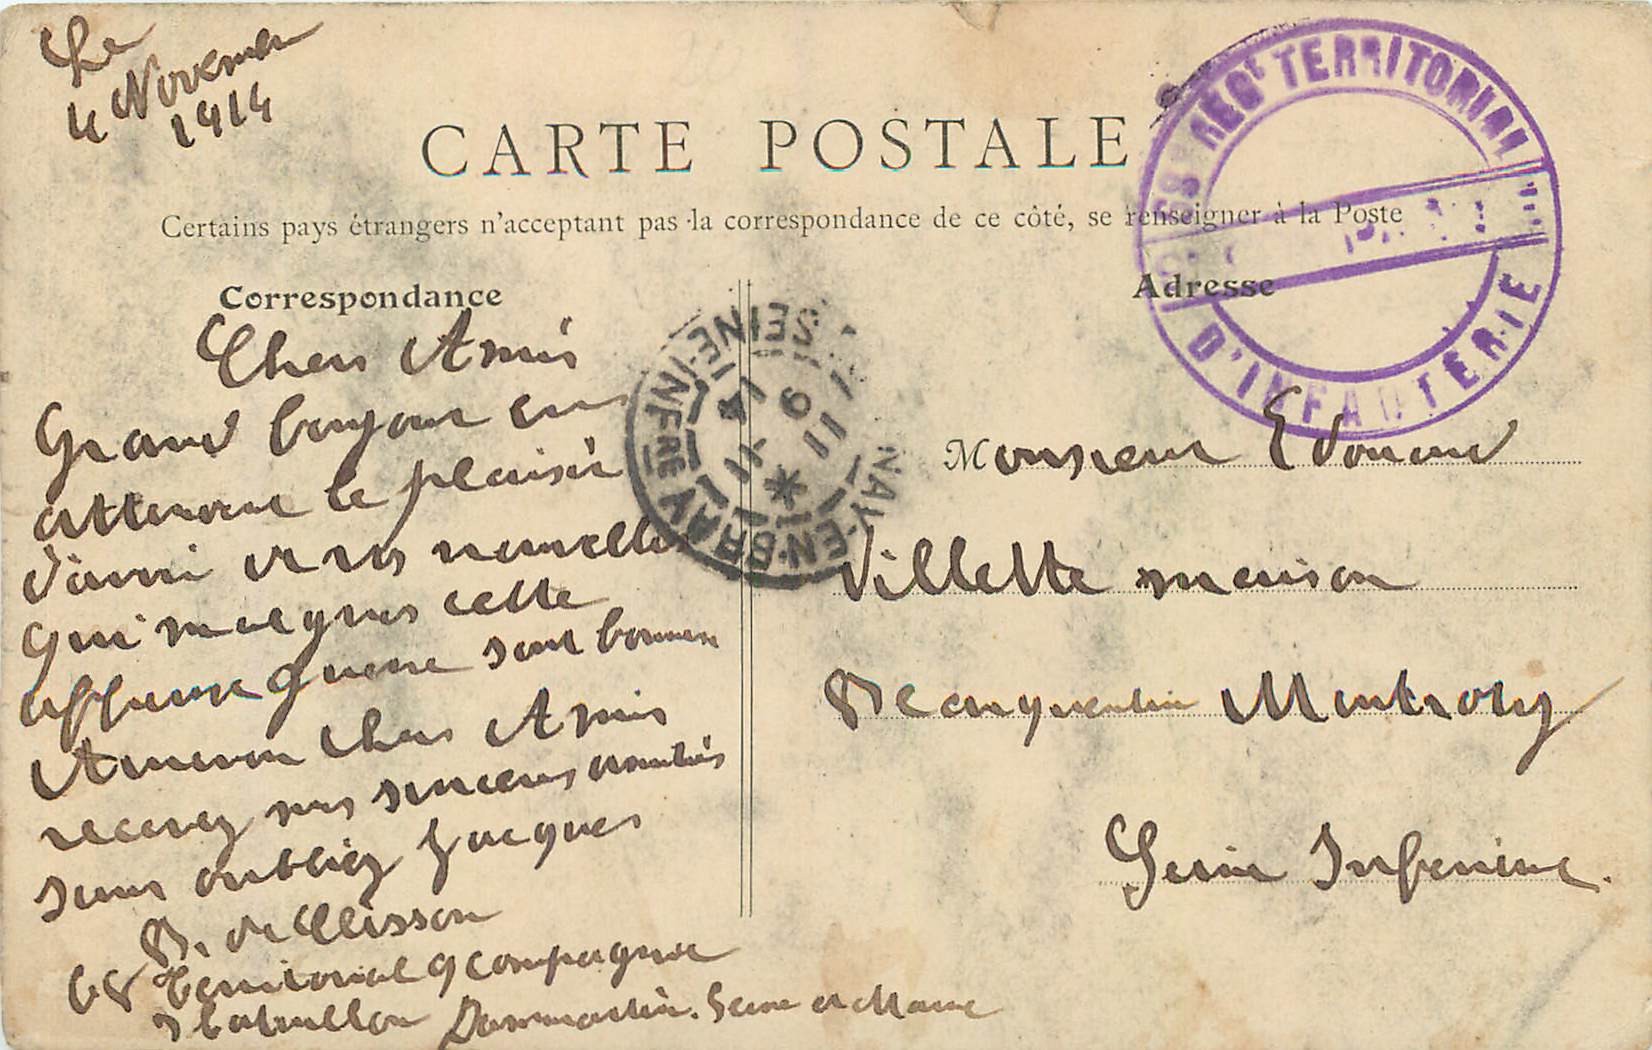 Le
4 Novembre
1914
CARTE POSTALE
Certains pays étrangers n'acceptant pas la correspondance de ce côté, se renseigner à la Poste
Correspondance
Adresse
68e REGt TERRITORIAL
D'INFANTERIE
NAY-EN-BRAY
SEINE-INFRE
9 11 * 11 14
Chers Amis
Grand bonjour en
attendant le plaisir
d'avoir de vos nouvelles
qui malgres cette
affreuse guerre sont bonnes
Au revoir Chers Amis
recevez mes sinceres amitiés
sans oubliez Jacques
B. de Clisson
68 Territorial 9 Compagnie
3 bataillon Dammartin. Seine et Marne
Monsieur Edouard
Villette maison
Montroty
Seine Inferieure.